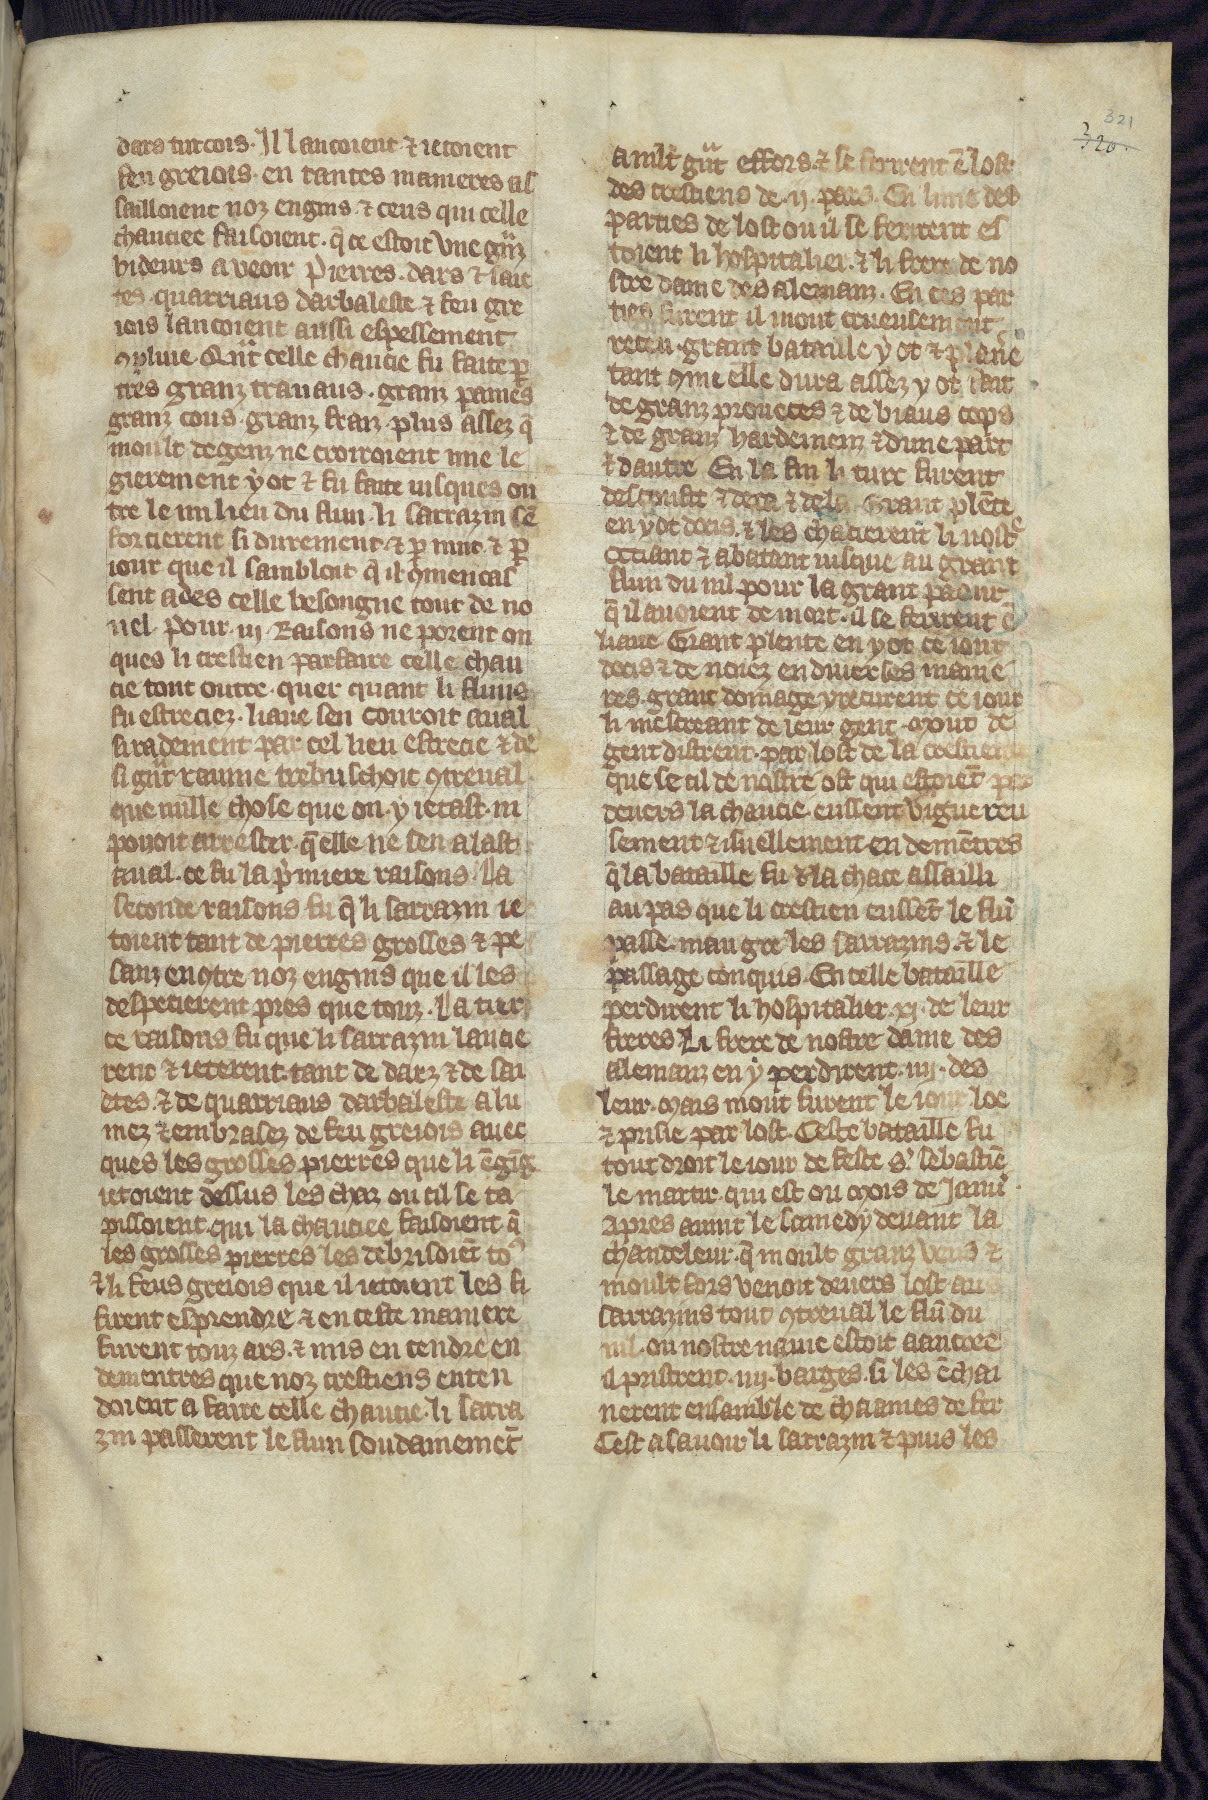 321
320.
dars turcois. Il lancoient ⁊ ietoient
feu greiois. en tantes manieres as
sailloient noz engins. ⁊ ceus qui celle
chauciee faisoient. q̃ ce estoit vne grãz
hideurs a veoir. Pierres. dars ⁊ saie
tes. quarriaus darbaleste ⁊ feu gre
iois lancoient aussi espessement
9 pluie. Qñt celle chaucie fu faite p̱
tres granz trauaus. granz paines
granz cous. granz fraiz. plus assez q̃
moult de genz ne croiroient mie le
gierement y ot ⁊ fu faite iusques ou
tre le milieu du flun. li sarrazin sẽ
forcierent si durement. ⁊ p̱ nuit. ⁊ p̱
iour que il sambloit q̃ il 9mencas
sent ades celle besongne tout de no
uel. Pour .iij. Raisons ne porent on
ques li crestien parfaire celle chau
cie tout outre. quer quant li fluns
fu estreciez. liaue sen couroit aual
si radement par cel lieu estrecie ⁊ de
si grãt raume trebuschoit 9treual.
que nulle chose que on. y ietast. ni
pouoit arrester. q̃ elle ne sen alast
aual. ce fu la p̃miere raisons. La
seconde raisons fu q̃ li sarrazin ie
toient tant de pierres grosses ⁊ pe
sanz en9tre noz engins que il les
despecierent pres que touz. La tier
ce raisons fu que li sarrazin lancie
rent ⁊ ieterent. tant de darz ⁊ de sai
etes. ⁊ de quarriaus darbaleste alu
mez ⁊ embrasez de feu greiois auec
ques les grosses pierres que li ẽgĩg
ietoient dessus les chaz ou cil se ta
pissoient. qui la chauciee faisoient q̃
les grosses pierres les debrisoiẽt to9
⁊ li feus greiois que il ietoient les fi
firent esprendre ⁊ en ceste maniere
furent touz ars. ⁊ mis en cendre. en
dementres que noz crestiens enten
doient a faire celle chaucie. li sarra
zin passerent le flun soudainemẽt
a mlt̃ grãt effors. ⁊ se ferirent ẽ lost
des crestiens de .ij. pars. En lune des
parties de lost ou il se ferirent es
toient li hospitalier. ⁊ li frere de no
stre dame des alemanz. En ces par
ties furent il mout crueusement
receu. grant bataille y ot ⁊ pleñe
tant 9me elle dura assez y ot fait
de granz proueces ⁊ de biaus cops
⁊ de granz hardemenz ⁊ dune part
⁊ dautre. En la fin li turc furent
desconfit ⁊ deca ⁊ dela. Grant plẽte
en y ot docis. ⁊ les chacierent li nostᵉ
occiant ⁊ abatant iusque au grant
flun du nil pour la grant paour
q̃ il auoient de mort. il se ferirent ẽ
liaue. Grant plente en y ot ce iour
docis ⁊ de noiez en diuerses manie
res. grant domage y recurent ce iour
li mescreant de leur gent. Mout de
gent distrent. par lost de la crestiente
que se cil de nostre ost qui estoiẽt par
deuers la chaucie. eussent viguereu
sement ⁊ isnellement. en demẽtres
q̃ la bataille fu ⁊ la chace assailli
au pas que li crestien eussẽt le flũ
passe. maugre les sarrazins. ⁊ le
passage conquis. En celle bataille
perdirent li hospitalier .xj. de leur
freres. Li frere de nostre dame des
alemanz en y perdirent .iiij. des
leur. Mais mout furent le iour loe
⁊ prisie par lost. Ceste bataille fu
tout droit le iour de feste S. sebastiẽ
le martir. qui est ou mois de Janũ.
Apres auint le samedy deuant la
chandeleur. q̃ moult granz vens ⁊
moult fors venoit deuers lost aus
sarrazins tout 9treual le flũ du
nil. ou nostre nauie estoit aancree
il pristrent .iiij. barges. si les ẽchai
nerent ensamble de chaaines de fer
Cest asauoir li sarrazin ⁊ puis les